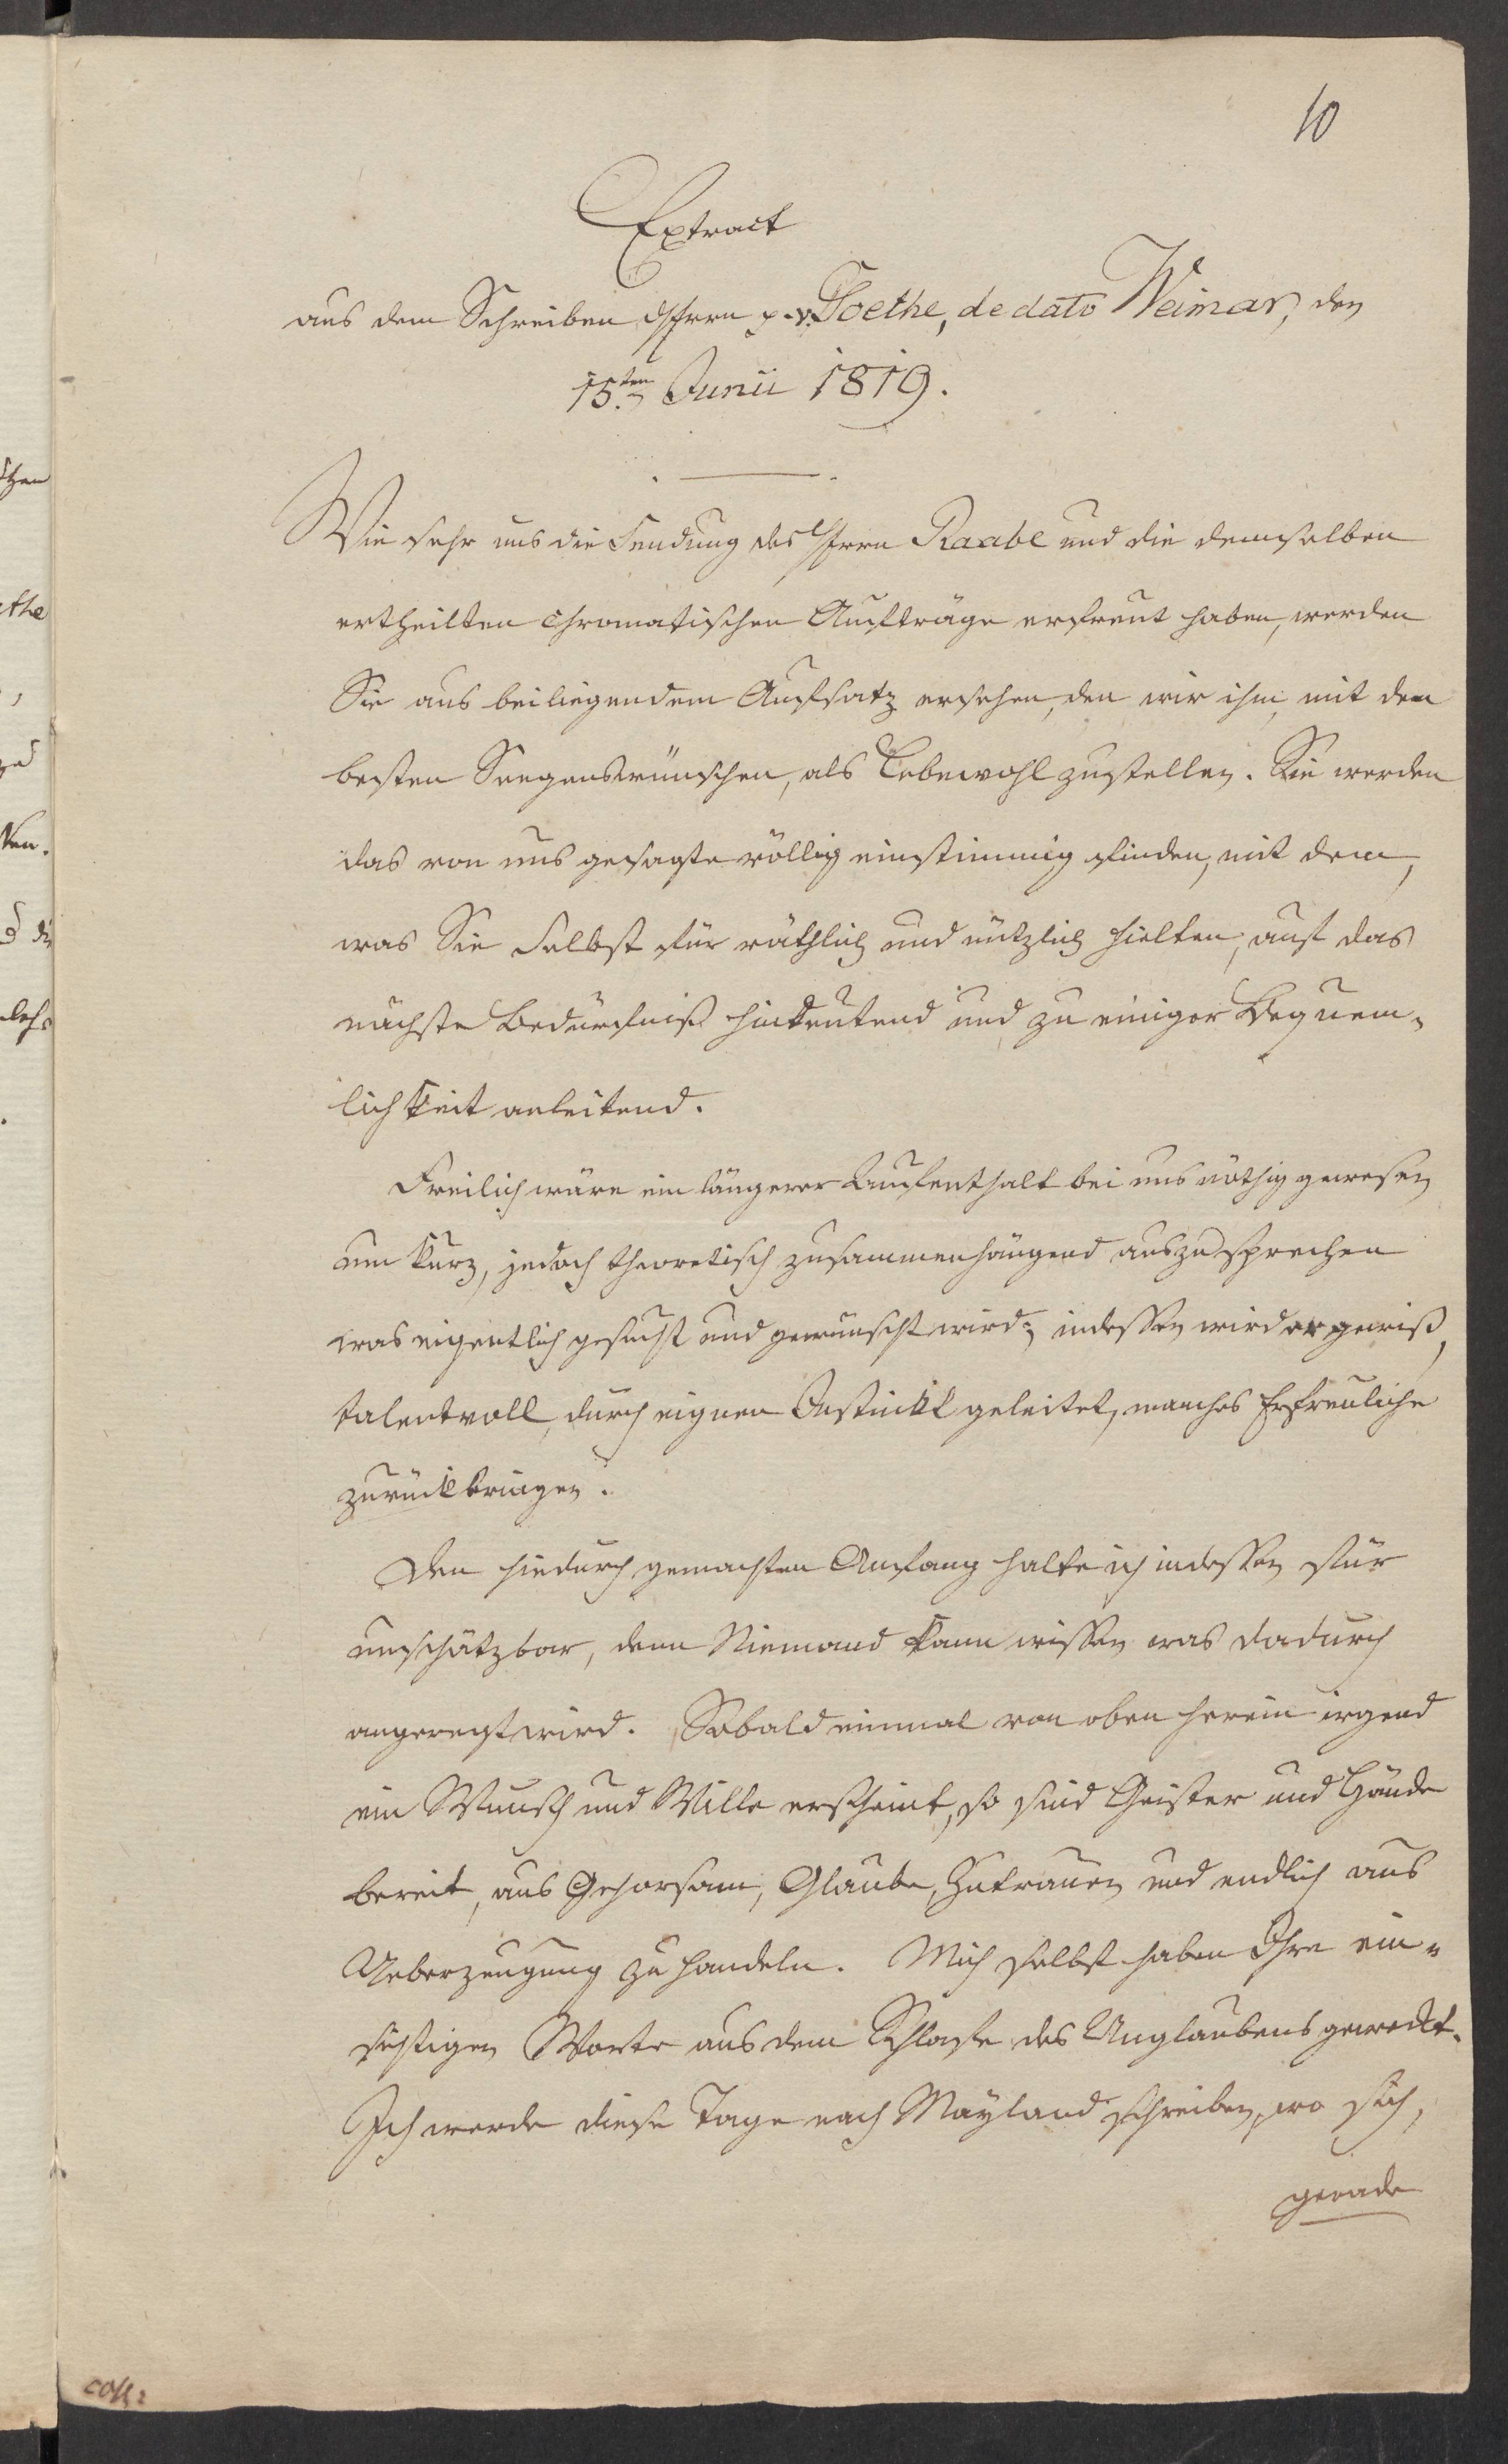 10
Extract
aus dem Schreiben d Herrn p. v. Goethe, de dato Weimar, den
15.ten Junii 1819.
Wie sehr uns die Sendung des Herrn Raabe und die demselben
ertheilten chromatischen Aufträge erfreut haben, werden
Sie aus beiliegendem Aufsatz ersehen, den wir ihm, mit den
besten Seegenswünschen, als Lebewohl zustellen. Sie werden
das von uns gesagte völlig einstimmig finden, mit dem,
was Sie Selbst für räthlich und nützlich hielten, auf das
nächste Bedürfniß hindeutend und zu einiger Bequem-
lichkeit anleitend.
Freilich wäre ein längerer Aufenthalt bei uns nöthig gewesen
um kurz, jedoch theoretisch zusammenhängend auszusprechen
was eigentlich gesucht und gewünscht wird; indessen wird er gewiß,
talentvoll, durch eignen Instinkt geleitet, manches Erfreuliche
zurückbringen.
Den hiedurch gemachten Anfang halte ich indessen für
unschätzbar, denn Niemand kann wissen was dadurch
angeregt wird. Sobald einmal von oben herein irgend
ein Wunsch und Wille erscheint, so sind Geister und Hände
bereit, aus Gehorsam, Glaube, Zutrauen und endlich aus
Ueberzeugung zu handeln. Mich selbst haben Ihre ein-
sichtigen Worte aus dem Schlafe des Unglaubens geweckt.
Ich werde diese Tage nach Mayland schreiben, wo sich,
gerade